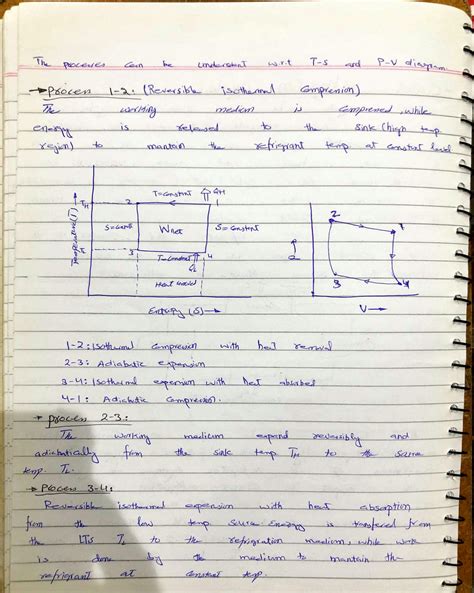 The processes can be understant w.r.t T-S and P-V diagram
→ Process 1-2: (Reversible isothermal Compression)
The working medium is Compressed, while
energy is released to the sink (high temp
region) to mantain the refrigrant temp at constant level
T=Constant QH
TH 2 1
S=Const Wnet S=Constant
3 T=Constant 4
QL
Heat
Temperature(T) →
Entropy (S) →
2 1
3 4
V →
1-2: Isothermal compression with heat removal
2-3: Adiabatic expansion
3-4: Isothermal expansion with heat absorbed
4-1: Adiabatic Compression.
→ Process 2-3:
The working medium expand reversibly and
adiabatically from the sink temp TH to the source
temp. TL.
→ Process 3-4:
Reversible isothermal expansion with heat absorption
from the low temp source Energy is transfered from
the TL to the refrigration medium, while work
is done by the medium to mantain the
refrigrant at constant temp.